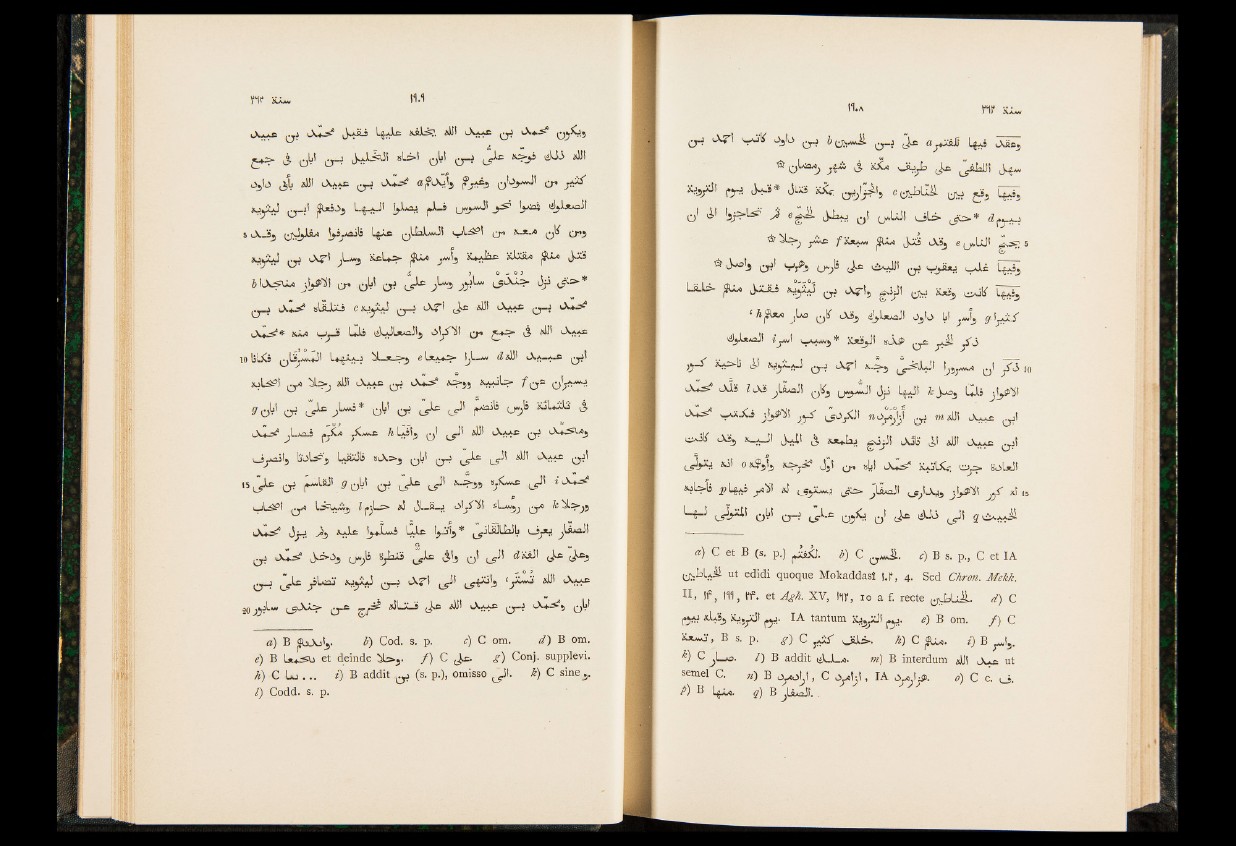 ١٩٠٨ سنة ٢٦٣
وعقد فيها لكفتمر a علىّ بن الحسين b بن داود كاتب احمد بن
سهل اللطفىّ على طريف مكّة فى شهر رمضان ۞
وفيها وقع بين الحنّاطين c والجزّارين بمكّة قتال *قبل يوم التروية
بيوم d *حتى خاف الناس ان يبطل الحجّ e ثم تحاجزوا الى ان
5 يحجّ الناس e وقد قُتل منهم سبعة f عشر رجلا ۞
وفيها غلب يعقوب بن الليث على فارس وهرب ابن واصل ۞
وفيها كانت وقعة بين الزنج واحمد بن لَيْثَوَيْه فقتل منهم خلقا
كثيرا g وأسر ابا داود الصعلوك وقد كان صار معهم h ،
ذكر الخبر عن هذه الوقعة *وسبب اسر i الصعلوك
10 ذكر ان مسرورا البلخىّ وجّه احمد بن ليثويه الى ناحية كور
الاهواز فلمّا وصل k اليها نزل السُّوس وكان الصفّار قد l قلّد محمّد
ابن عبيد الله m بن أَزَارْمَرْد n الكردىّ كور الاهواز فكتب محمّد
ابن عبيد الله الى قائد الزنج يطمعه فى الميل اليه وقد كانت
العادة جرت بمكاتبة محمّد اياه من اوّل مخرجه وأوهمه o انه يتولّى
15 له كور الاهواز ويدارى الصفّار حتى يستوى له الامر فيها p فأجابه
الخبيث q الى ذلك على ان يكون علىّ بن ابان المتولّى لها
a) C et B (s. p.) لَكُفْتُمِر. b) C الحسن. c) B s. p., C et IA
الخياطين ut edidi quoque Mokaddasî ١٠٢, 4. Sed Chron. Mekk.
II, ١٤, ١٩٩, ٢٤٠ et Agh. XV, ١٩٢, 10 a f. recte الحناطين. d) C
يوم التروية وقبله بيوم. IA tantum يوم التروية. e) B om. f) C
تسعة, B s. p. g) C خلف كثير. h) C منهم. i) B واسر.
k) C صار. l) B addit ملك. m) B interdum عبد الله ut
semel C. n) B ارادمرد, C ازامرد, IA هزارمرد. o) C c. ف.
p) B منها. q) B الصفار.
١٩٠٩ سنة ٢٦٣
ويكون محمّد بن عبيد الله يخلفه عليها فقبل محمّد بن عبيد
الله ذلك فوجّه علىّ بن ابان اخاه الخليل بن ابان فى جمع
كثير من السودان وغيرهم وأيّدهم a محمّد بن عبيد الله بأبى داود
الصعلوك فمضوا نحو السوس فلم يصلوا اليها ودفعهم ابن ليثويه
5 ومن كان معه من اصحاب السلطان عنها فانصرفوا مفلولين وقد
قتل منهم مقتلة عظيمة وأسر منهم جماعة وسار احمد بن ليثويه
*حتى نزل جُنْدَىْ سابُور وسار علىّ بن ابان من الاهواز منجدا b
محمّد بن عبيد الله على احمد بن ليثويه c فتلقّاه محمّد بن
عبيد الله فى جمع من الاكراد والصعاليك فلمّا قرب منه *محمّد
10 ابن عبيد الله d سارا جميعا e وجعلا بينهما المَسْرُقَان فكانا
يسيران عن f جانبيه ووجّه محمّد بن عبيد الله رجلا من اصحابه
فى ثلثمائة فارس فانضمّ الى علىّ بن ابان *فسار علىّ بن ابان g
ومحمّد بن عبيد الله الى ان وافَيَا h عسكر مُكْرَم فصار محمّد
ابن عبيد الله الى علىّ بن ابان وحده فالتقيا وتحادثا وانصرف
15 محمّد i الى عسكره ووجّه الى علىّ بن ابان g القاسم بن علىّ
ورجلا k من رؤساء الاكراد يقال له حازم l وشيخا من اصحاب
الصفّار يعرف بالطالقانىّ *وأتوا عليًّا فسلّموا عليه ولم يزل محمّد
وعلىّ على الفة d الى ان وافى علىّ قنطرة فارس ودخل محمّد بن
عبيد الله تُسْتَر، وانتهى الى احمد بن ليثويه تضافر علىّ بن
20 ابان ومحمّد بن عبيد الله على قتاله فخرج عن جندى سابور
a) B وامدهم. b) Cod. s. p. c) C om. d) B om.
e) B جمعا et deinde وحلا. f) C على. g) Conj. supplevi.
h) C ... i) B addit بن (s. p.), omisso الى. k) C sine و.
l) Codd. s. p.